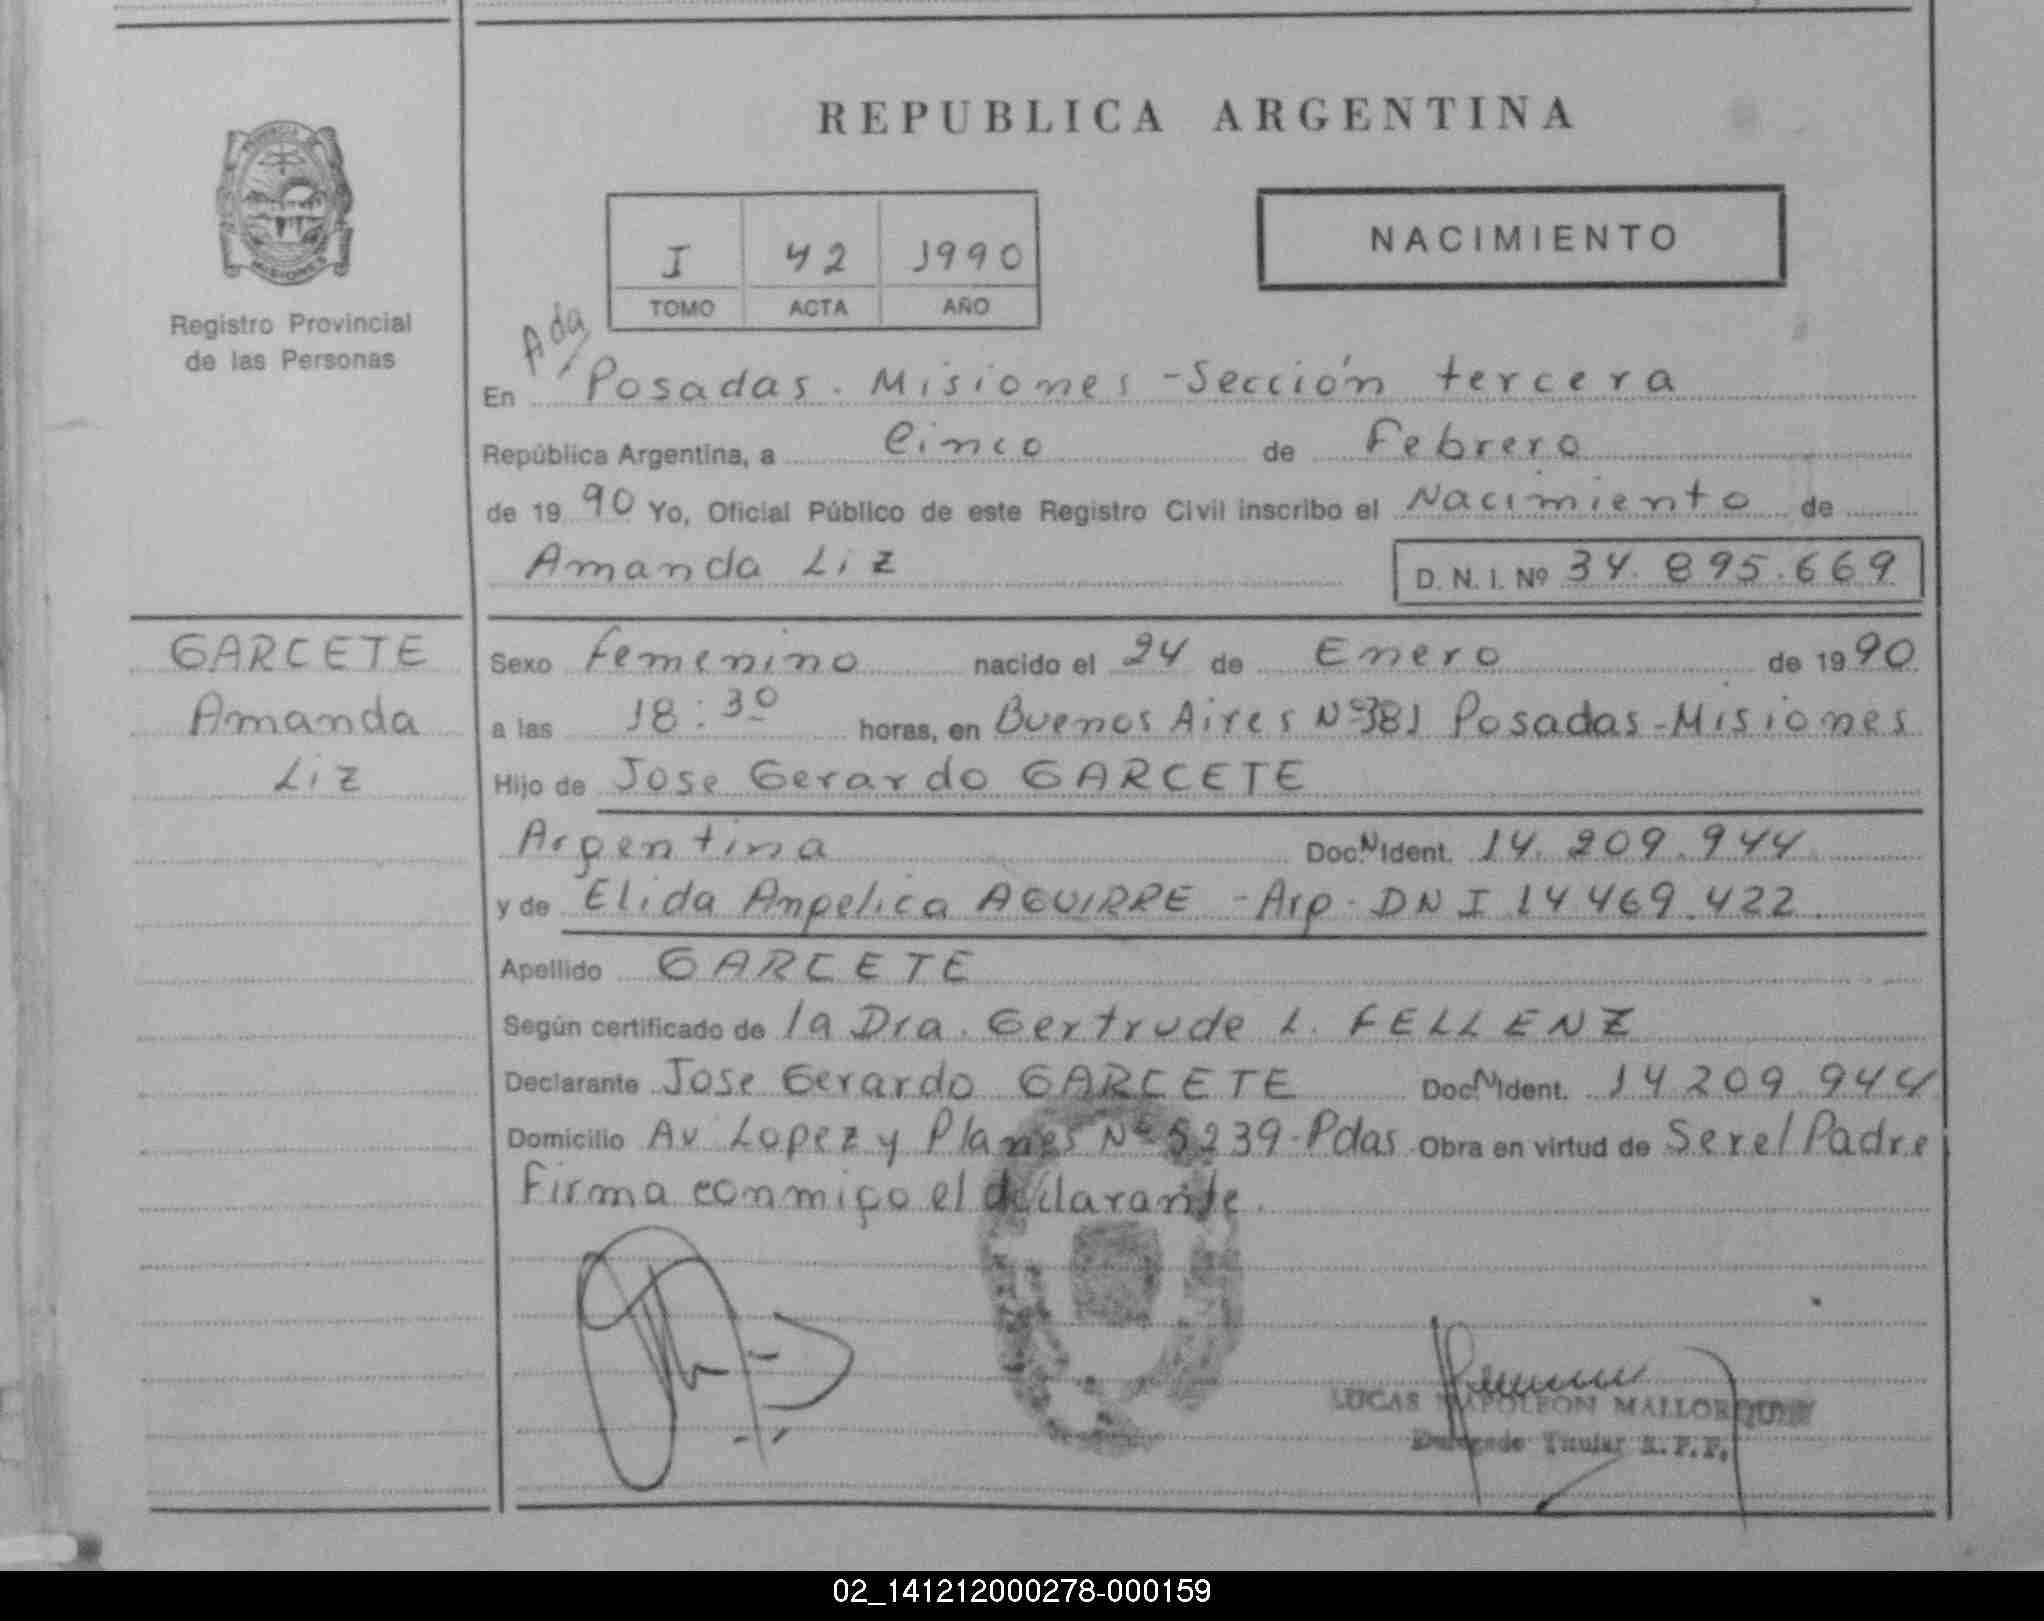 REPUBLICA ARGENTINA
MISIONES
Registro Provincial
de las Personas
I 42 1990
TOMO ACTA AÑO
NACIMIENTO
Ada
En Posadas. Misiones - Sección tercera
República Argentina, a Cinco de Febrero
de 19 90 Yo, Oficial Público de este Registro Civil inscribo el Nacimiento de
Amanda Liz D. N. I. Nº 34.895.669
GARCETE
Amanda
Liz
Sexo Femenino nacido el 24 de Enero de 19 90
a las 18:30 horas, en Buenos Aires Nº 381 Posadas - Misiones
Hijo de Jose Gerardo GARCETE
Argentina Doc. N Ident. 14.209.944
y de Elida Angelica AGUIRRE - Arg. DNI 14 469.422
Apellido GARCETE
Según certificado de la Dra. Gertrude L. FELLENZ
Declarante Jose Gerardo GARCETE Doc. N Ident. 14 209.944
Domicilio Av Lopez y Planes Nº 5239 - Pdas Obra en virtud de Ser el Padre
Firma conmigo el declarante.
LUCAS NAPOLEON
Delegado Titular R.P.P.
02_141212000278-000159